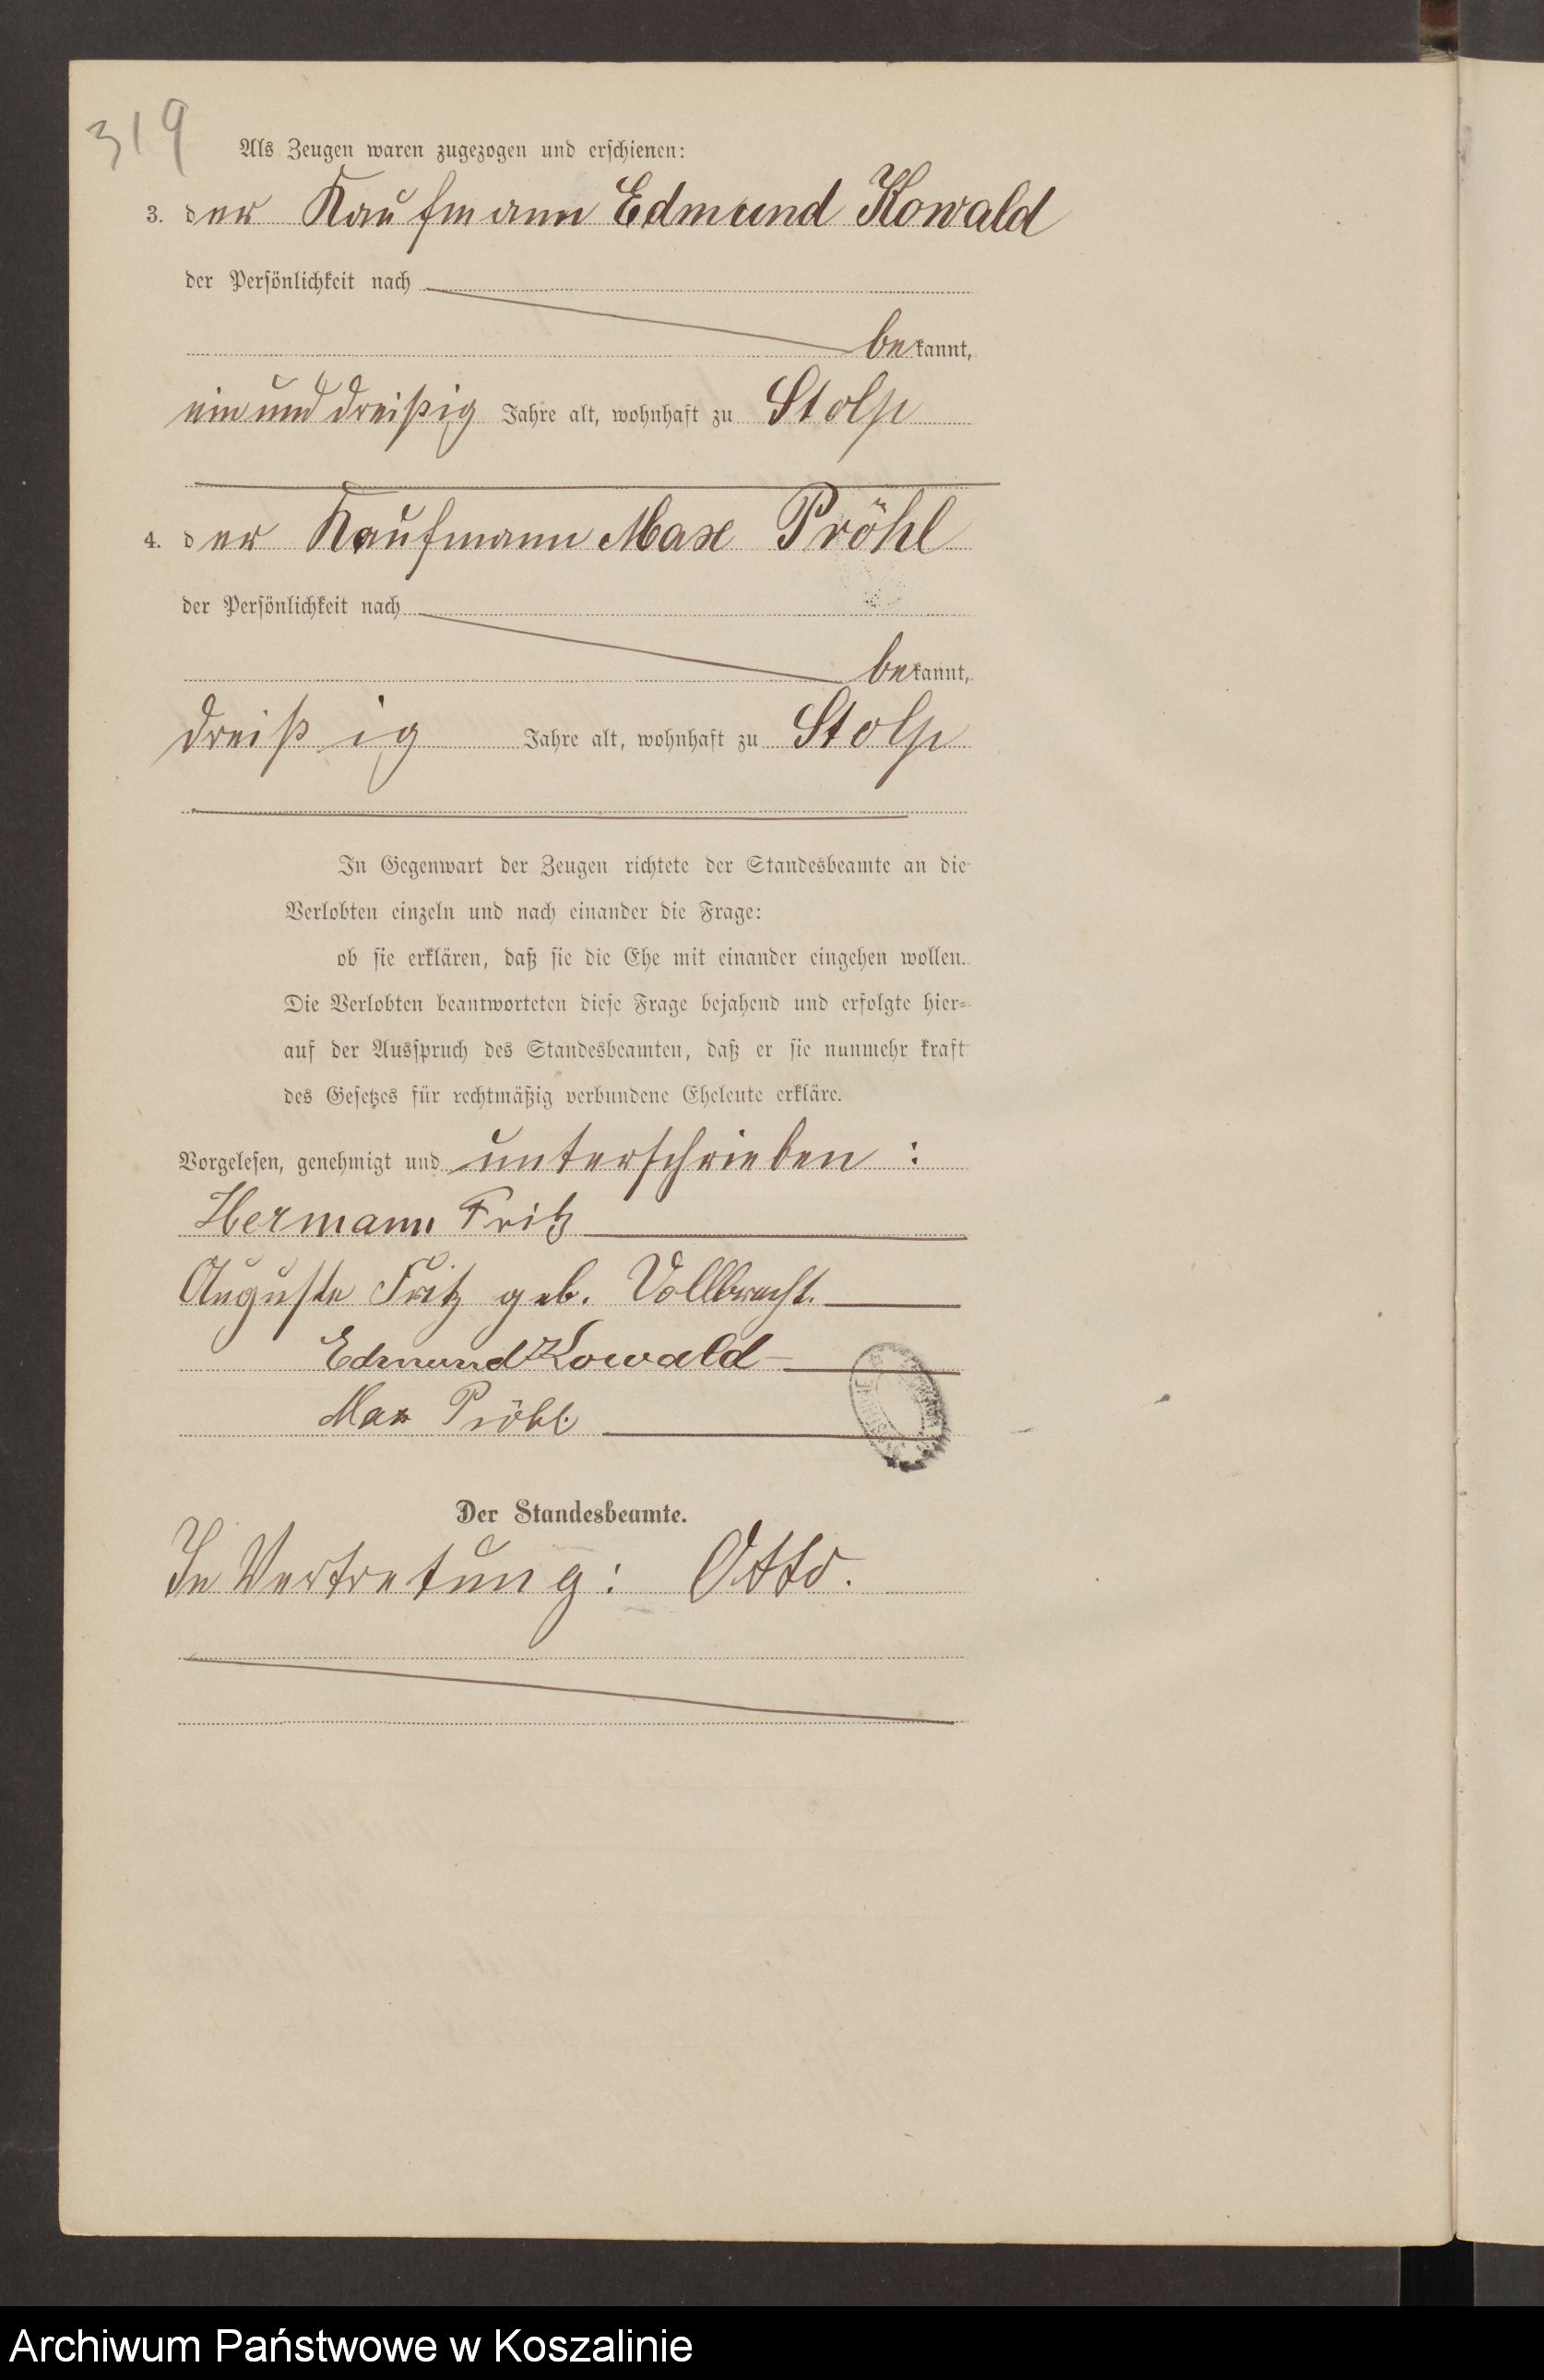 319
Als Zeugen waren zugezogen und erschienen:
3. der Kaufmann Edmund Kowald
der Persönlichkeit nach
bekannt,
ein und dreißig Jahre alt, wohnhaft zu Stolp
4. der Kaufmann Max Pröhl
der Persönlichkeit nach
bekannt,
dreißig Jahre alt, wohnhaft zu Stolp
In Gegenwart der Zeugen richtete der Standesbeamte an die
Verlobten einzeln und nach einander die Frage:
ob sie erklären, daß sie die Ehe mit einander eingehen wollen.
Die Verlobten beantworteten diese Frage bejahend und erfolgte hier-
auf der Ausspruch des Standesbeamten, daß er sie nunmehr kraft
des Gesetzes für rechtmäßig verbundene Eheleute erkläre.
Vorgelesen, genehmigt und unterschrieben:
Hermann Fritz
Auguste Fritz geb. Vollbrecht.
Edmund Kowald
Max Pröhl.
Der Standesbeamte.
In Vertretung: Otto.
Archiwum Państwowe w Koszalinie